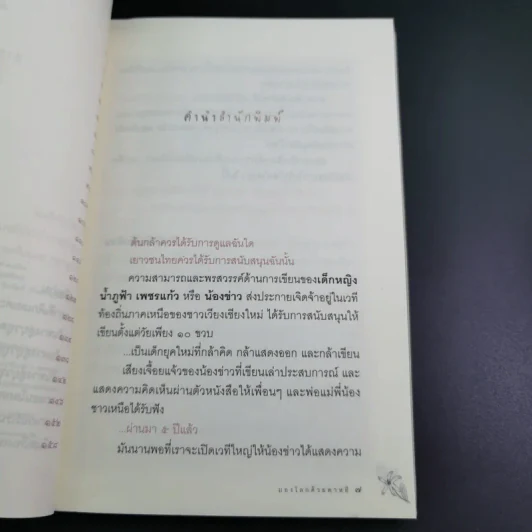 คำนำสำนักพิมพ์
ต้นกล้าควรได้รับการดูแลฉันใด
เยาวชนไทยควรได้รับการสนับสนุนฉันนั้น
ความสามารถและพรสวรรค์ด้านการเขียนของเด็กหญิง
น้ำภูฟ้า เพชรแก้ว หรือ น้องข่าว ส่งประกายเจิดจ้าอยู่ในเวที
ท้องถิ่นภาคเหนือของชาวเวียงเชียงใหม่ ได้รับการสนับสนุนให้
เขียนตั้งแต่วัยเพียง ๑๐ ขวบ
...เป็นเด็กยุคใหม่ที่กล้าคิด กล้าแสดงออก และกล้าเขียน
เสียงเจื้อยแจ้วของน้องข่าวที่เขียนเล่าประสบการณ์ และ
แสดงความคิดเห็นผ่านตัวหนังสือให้เพื่อนๆ และพ่อแม่พี่น้อง
ชาวเหนือได้รับฟัง
...ผ่านมา ๕ ปีแล้ว
มันนานพอที่เราจะเปิดเวทีใหญ่ให้น้องข่าวได้แสดงความ
มองโลกด้วย ๗